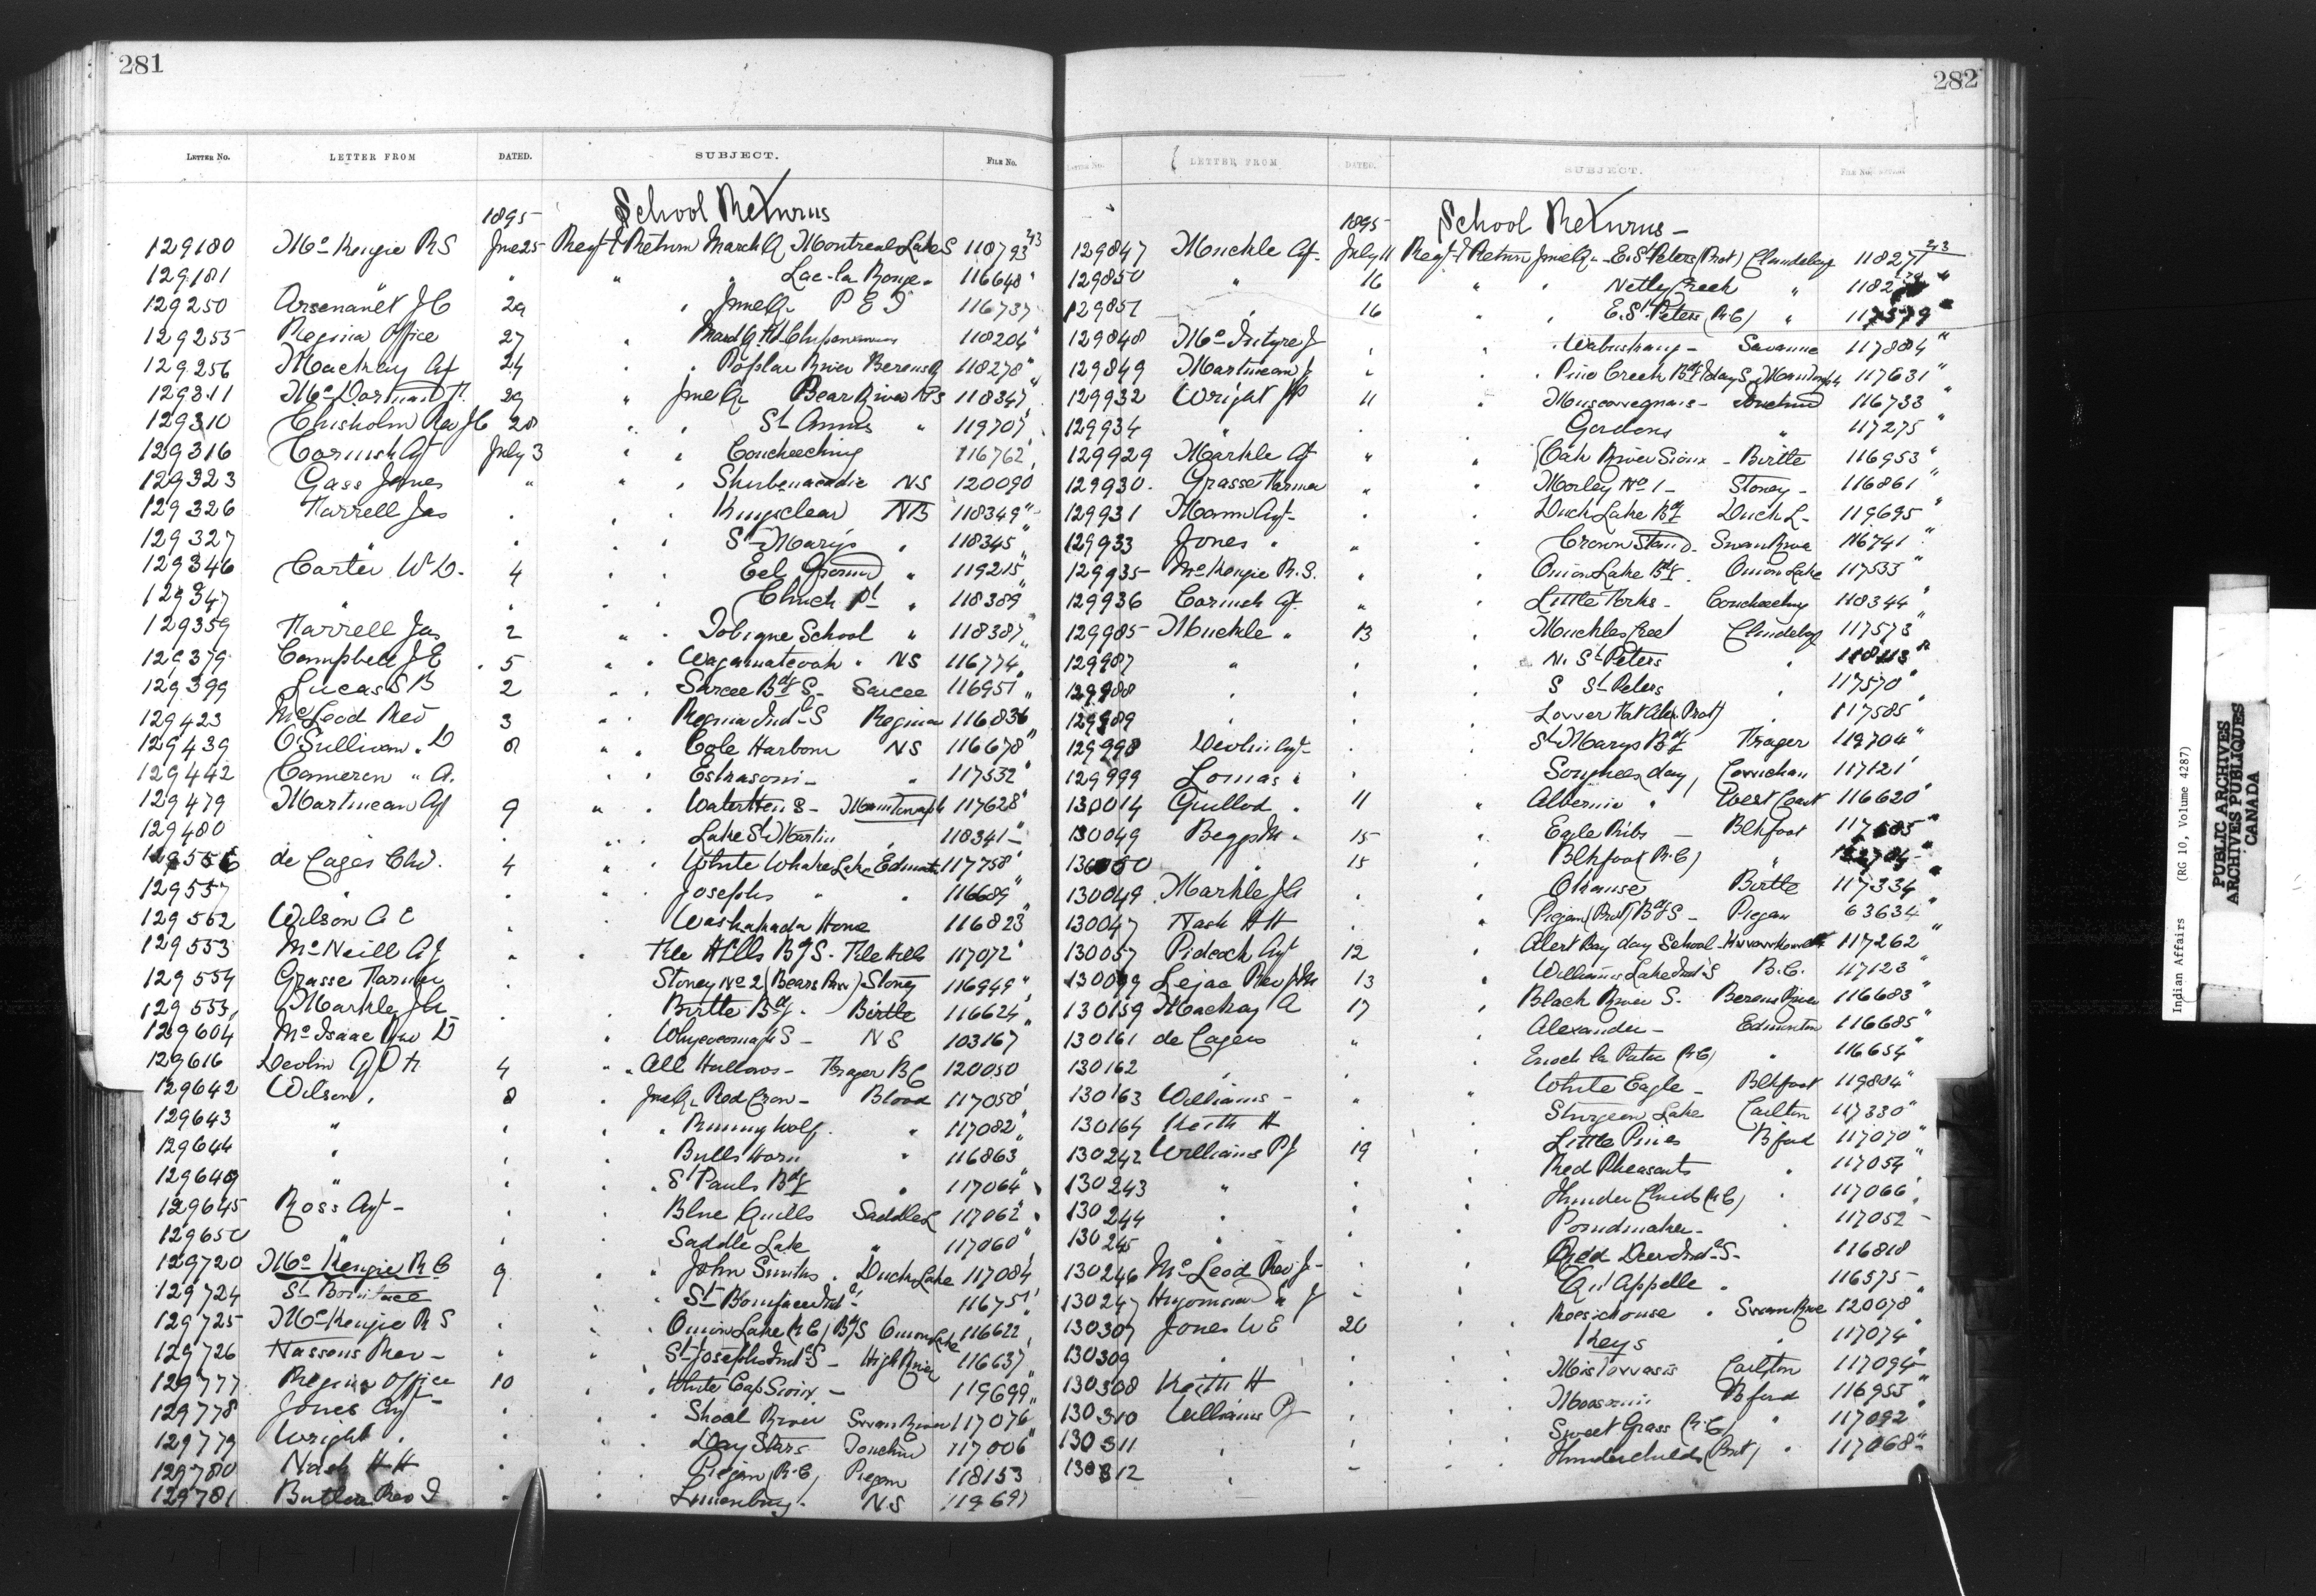 281
LETTER No. LETTER FROM DATED. SUBJECT. FILE No.
1895 School Returns
129180 McKenzie RS June 25 Regr & Return March Q Montreal Lake S 118793 243
129181 " " " Lac-la-Ronge " 116648 "
129250 Arsenault J C 29 " June Qr P E I 116737
129255 Regina Office 27 " March Qr 118204 "
129256 Mackay Agt 24 " Poplar River Berens 118278 "
129311 29 " June Qr Bear River NS 118347 "
129310 Chisholm Rev JC 28 " " St Anns " 119707
129316 Cornish Agt July 3 " " Coucheeching 116762
129323 Gass James " " " Shubenacadie NS 120090
129326 Farrell Jas " " " Kingsclear NB 118349 "
129327 " " " " St Marys " 118345 "
129346 Carter W D. 4 " " Eel Ground " 119215 "
129347 " " " " Church Pt " 118389 "
129359 Farrell Jas 2 " " Tobique School " 118387 "
129379 Campbell J E 5 " " Wagamatcook " NS 116774 "
129399 Lucas S B 2 " " Sarcee Bdg S- Sarcee 116951 "
129423 McLeod Rev 3 " " Regina Indl S Regina 116836
129439 O'Sullivan " D 8 " " Cole Harbour NS 116678 "
129442 Cameron " A. " " Eskasoni - " 117532 "
129479 Martineau Agt 9 " " Waterhen S - 117628 "
129480 " " " Lake St Martin " 118341 -
de Cazes Chs. 4 " " White Whale Lake Edmonton 117758 "
129557 " " " Josephs " " 116689 "
129552 Wilson A E " Washakada Home 116823 "
129553 McNeill A J " " File Hills Bdg S. File Hills 117072 "
129554 Grasse Farmer " Stoney No 2 (Bears Paw) Stoney 116949 "
129555 Markle JA " " Birtle Bdg. - Birtle 116624 "
129604 McIsaac Rev D " Whycocomagh S - NS 103167 "
129616 Devlin 4 " " All Hallows - Fraser BC 120050
129642 Wilson " 8 " June Qr Red Crow - Blood 117058 "
129643 " " " " Running Wolf " 117082 "
129644 " " " Bulls Horn " 116863 "
129649 " " " St Pauls Bdg " 117064
129645 Ross Agt - " " Blue Quills Saddle L 117062 "
129650 " " Saddle Lake " 117060 "
129720 McKenzie R S 9 " " John Smiths " Duck Lake 117084
129724 St Boniface " St Boniface Indl 116751
129725 McKenzie R S " " Onion Lake (R C) Bdg S Onion Lake 116622
129726 Nassons Rev - " " St Josephs Indl S - High River 116637
129777 Regina Office 10 " " White Cap Sioux - 119699 "
129778 Jones Agt - " " " Shoal River Swan River 117076
129779 Wright " " " Day Stars Touchwood 117006 "
129780 Nash H H " " Piegan (R.C) Piegan 118153
129781 Butler Rev T " " Lunenburg - NS 119697
282
LETTER No. LETTER FROM DATED. SUBJECT. FILE No.
1895 School Returns -
129847 Muckle Agt. July 11 Regr & Return June Qr - E. St Peters (Prot) Clandeboy 118271 243
129850 " 16 " " Netley Creek "
129851 " 16 " " E. St Peters (R C) " 117579 "
129848 McIntyre J " " " Wabuskang - Savanne 117884 "
129849 Martineau J " " " Pine Creek Bdg & day S. 117631 "
129932 Wright JP 11 " Muscowequans - Touchwood 116733 "
129934 " " " Gordons " 117275 "
129929 Markle Agt " " Oak River Sioux - Birtle 116953 "
129930 Grasse Farmer " " Morley No 1 - Stoney - 116861 "
129931 Mann Agt - " " Duck Lake Bdg Duck L - 119695 "
129933 Jones " " " Crown Stand - Swan River 116741 "
129935 McKenzie R. S. " " Onion Lake Bdg. Onion Lake 117533 "
129936 Cornish Agt. " " Little Forks - Coucheeching 118344 "
129985 Muckle " 13 " Muckles Creek Clandeboy 117573 "
129987 " " " N. St Peters "
129988 " " " S St Peters " 117570 "
129989 " " " Lower Fort Alex (Prot) " 117585 "
129998 Devlin Agt - " " St Marys Bdg Fraser 119704 "
129999 Lomas " " " Songhees day, Cowichan 117121
130014 Guillod " 11 " Albernie " West Coast 116620 "
130049 Begg M " 15 " Eagle Ribs - Blkfoot
" 15 " Blkfoot (R. C) "
130049 Markle JA " " Okanase Birtle 117334 "
130047 Nash H H " " Piegan (Prot) Bdg S - Piegan 63634 "
130057 Pidcock Agt 12 " Alert Bay day School - 117262 "
Lejac Rev JM 13 " Williams Lake Indl S B.C. 117123 "
130159 Mackay A 17 " Black River S. Berens River 116683 "
130161 de Cazes " Alexander - Edmonton 116685 "
130162 " " Enoch la Potac (R C) " 116654 "
130163 Williams - " " White Eagle - Blkfoot 119804 "
130164 Keith H " " Sturgeon Lake Carlton 117330 "
130242 Williams P J 19 " Little Pines Bford 117070 "
130243 " " " Red Pheasants " 117054 "
130244 " " " Thunder Childs (R C) " 117066
130245 " " " Poundmaker - " 117052 -
130246 McLeod Rev J - " " Red Deer Indl S - 116818
130247 Hugonnard " J - " Qu'Appelle " 116575 -
130307 Jones W E 20 " " Keesickouse " Swan River 120078 "
130309 " " " Keys " 117074 "
130308 Keith H " " Mistowasis Carlton 117094 -
130310 Williams PJ " " Moosomin Bford 116955 "
130311 " " " Sweet Grass (R. C) " 117092 "
130312 " - " Thunderchilds (Prot) " 117068 -
Indian Affairs (RG 10, Volume 4287)
PUBLIC ARCHIVES
ARCHIVES PUBLIQUES
CANADA